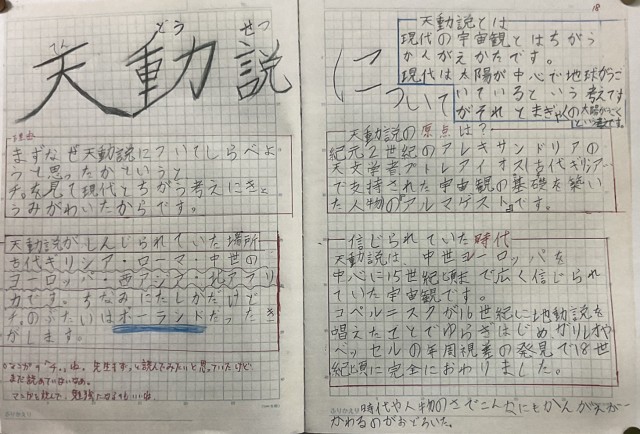 てん どう せつ
天動説
について
理由
まずなぜ天動説についてしらべよ
うと思ったかというと
チ。を見て現代とちがう考えにきょ
うみがわいたからです。
天動説がしんじられていた場所
古代ギリシア・ローマ・中世の
ヨーロッパ・西アジア・北アフリ
カです。ちなみにたしかだけど
チ。のぶたいはポーランドだったき
がします。
マンガの「チ。」ね。先生もずっと読んでみたいと思っていたけど
まだ読めていないなぁ。
マンガを読んで、勉強になるのもいいね
ふりかえり
18
天動説とは
現代の宇宙観とはちがう
かんがえかたです。
現代は太陽が中心で地球がうご
いているという考えです
がそれとまぎゃくの太陽がうごく
という事です。
天動説の原点は?
紀元2世紀のアレキサンドリアの
天文学者プトレマイオス(古代ギリシアー
で支持された宇宙観の基礎を築い
た人物の『アルマゲスト』です。
信じられていた時代
天動説は、中世ヨーロッパを
中心に15世紀頃まで広く信じられ
ていた宇宙観です。
コペルニスクが16世紀に地動説を
唱えたことでゆらぎはじめガリレオや
ベッセルの年周視差の発見で18世
紀頃に完全におわりました。
ふりかえり
時代や人物のさでこんなにもかんがえが
かわるのがおどろいた。